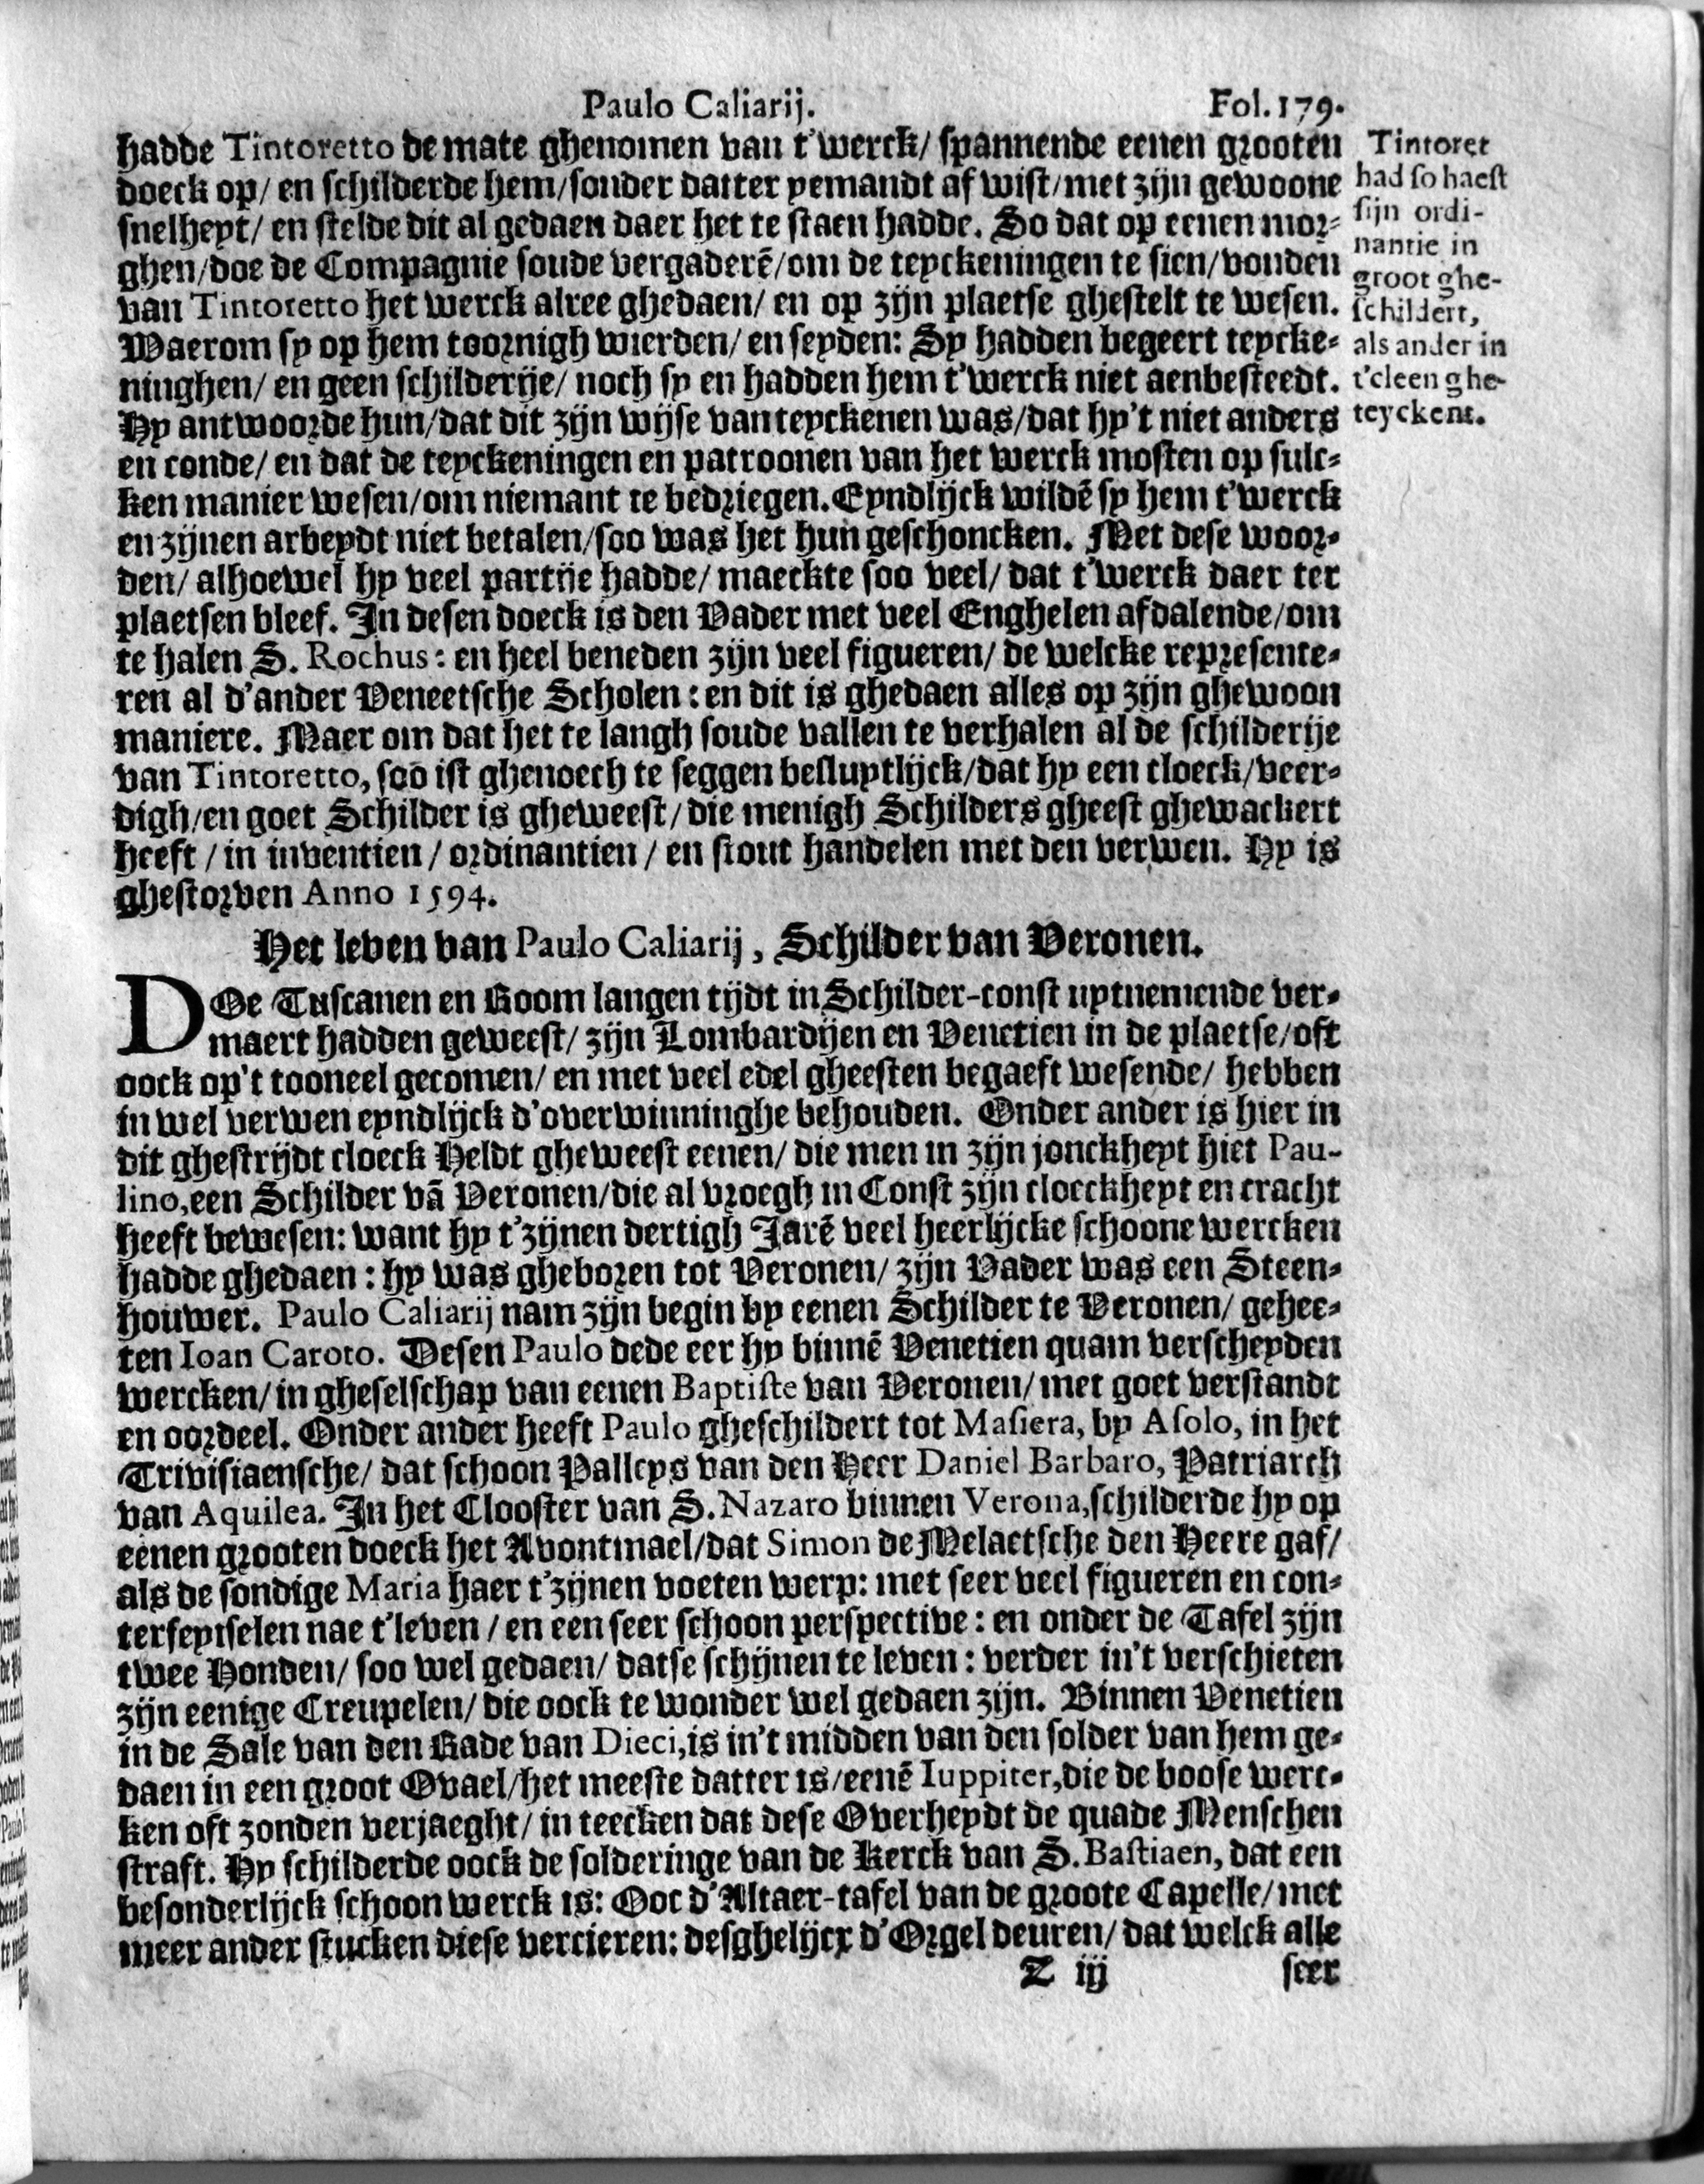 Paulo Caliarij. Fol. 179.
hadde Tintoretto de mate ghenomen van t'werck/ spannende eenen grooten
doeck op/ en schilderde hem/ sonder datter yemandt af wist/ met zijn gewoone
snelheyt/ en stelde dit al gedaen daer het te staen hadde. So dat op eenen mor-
ghen/ doe de Compagnie soude vergaderē/ om de teyckeningen te sien/ vonden
van Tintoretto het werck alree ghedaen/ en op zijn plaetse ghestelt te wesen.
Waerom sy op hem toornigh wierden/ en seyden: Sy hadden begeert teycke-
ninghen/ en geen schilderije/ noch sy en hadden hem t'werck niet aenbesteedt.
Hy antwoorde hun/ dat dit zijn wijse van teyckenen was/ dat hy't niet anders
en conde/ en dat de teyckeningen en patroonen van het werck mosten op sulc-
ken manier wesen/ om niemant te bedriegen. Eyndlijck wildē sy hem t'werck
en zijnen arbeydt niet betalen/ soo was het hun geschoncken. Met dese woor-
den/ alhoewel hy veel partije hadde/ maeckte soo veel/ dat t'werck daer ter
plaetsen bleef. In desen doeck is den Vader met veel Enghelen afdalende/ om
te halen S. Rochus: en heel beneden zijn veel figueren/ de welcke represente-
ren al d'ander Veneetsche Scholen: en dit is ghedaen alles op zijn ghewoon
maniere. Maer om dat het te langh soude vallen te verhalen al de schilderije
van Tintoretto, soo ist ghenoech te seggen besluytlijck/ dat hy een cloeck/ veer-
digh/ en goet Schilder is gheweest/ die menigh Schilders gheest ghewackert
heeft / in inventien / ordinantien / en stout handelen met den verwen. Hy is
ghestorven Anno 1594.
Tintoret
had so haest
sijn ordi-
nantie in
groot ghe-
schildert,
als ander in
t'cleen ghe-
teyckent.
Het leven van Paulo Caliarij, Schilder van Veronen.
DOe Tuscanen en Room langen tijdt in Schilder-const uytnemende ver-
maert hadden geweest/ zijn Lombardijen en Venetien in de plaetse/ oft
oock op't tooneel gecomen/ en met veel edel gheesten begaeft wesende/ hebben
in wel verwen eyndlijck d'overwinninghe behouden. Onder ander is hier in
dit ghestrijdt cloeck Heldt gheweest eenen/ die men in zijn jonckheyt hiet Pau-
lino, een Schilder vā Veronen/ die al vroegh in Const zijn cloeckheyt en cracht
heeft bewesen: want hy t'zijnen dertigh Jarē veel heerlijcke schoone wercken
hadde ghedaen: hy was gheboren tot Veronen/ zijn Vader was een Steen-
houwer. Paulo Caliarij nam zijn begin by eenen Schilder te Veronen/ gehee-
ten Ioan Caroto. Desen Paulo dede eer hy binnē Venetien quam verscheyden
wercken/ in gheselschap van eenen Baptiste van Veronen/ met goet verstandt
en oordeel. Onder ander heeft Paulo gheschildert tot Masiera, by Asolo, in het
Trivisiaensche/ dat schoon Palleys van den Heer Daniel Barbaro, Patriarch
van Aquilea. In het Clooster van S. Nazaro binnen Verona, schilderde hy op
eenen grooten doeck het Avontmael/ dat Simon de Melaetsche den Heere gaf/
als de sondige Maria haer t'zijnen voeten werp: met seer veel figueren en con-
terfeytselen nae t'leven / en een seer schoon perspective: en onder de Tafel zijn
twee Honden/ soo wel gedaen/ datse schijnen te leven: verder in't verschieten
zijn eenige Creupelen/ die oock te wonder wel gedaen zijn. Binnen Venetien
in de Sale van den Rade van Dieci, is in't midden van den solder van hem ge-
daen in een groot Ovael/ het meeste datter is/ eenē Iuppiter, die de boose werc-
ken oft zonden verjaeght/ in teecken dat dese Overheydt de quade Menschen
straft. Hy schilderde oock de solderinge van de Kerck van S. Bastiaen, dat een
besonderlijck schoon werck is: Ooc d'Altaer-tafel van de groote Capelle/ met
meer ander stucken diese vercieren: desghelijcx d'Orgel deuren/ dat welck alle
Z iij seer